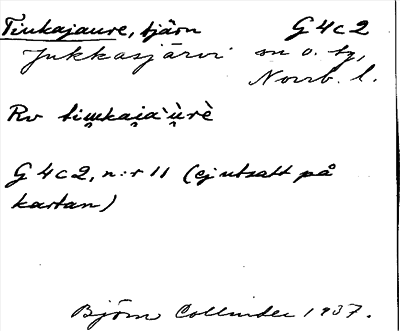 Tiukajaure, tjärn G4c2
Jukkasjärvi sn o. tg,
Norrb. l.
Rv
G4c2, n:r 11 (ej utsatt på
kartan)
Björn Collinder 1937.